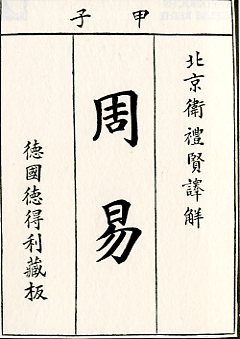 甲子
北京衛禮賢譯解
周易
德國德得利藏板